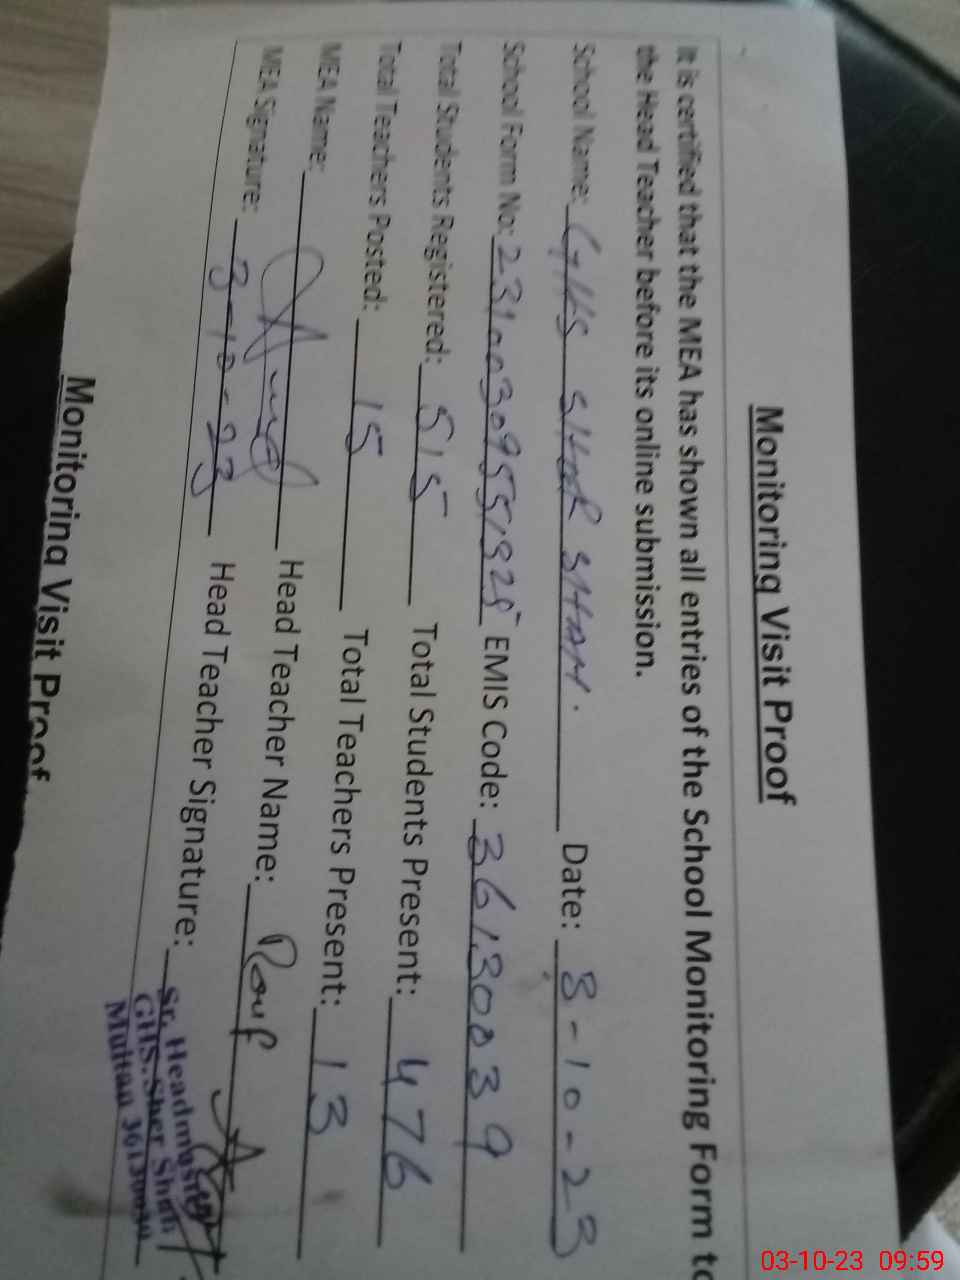 Monitoring Visit Proof
It is certified that the MEA has shown all entries of the School Monitoring Form to
the Head Teacher before its online submission.
School Name: GHS SHER SHAH. Date: 3-10-23
School Form No: EMIS Code: 36130039
Total Students Registered: 515 Total Students Present: 476
Total Teachers Posted: 15 Total Teachers Present: 13
MEA Name: Head Teacher Name: Rouf
MEA Signature: 3-10-23 Head Teacher Signature:
Sr. Headmaster
GHS. Sher Shah
Multan 36130039
Monitoring Visit Proof
03-10-23 09:59